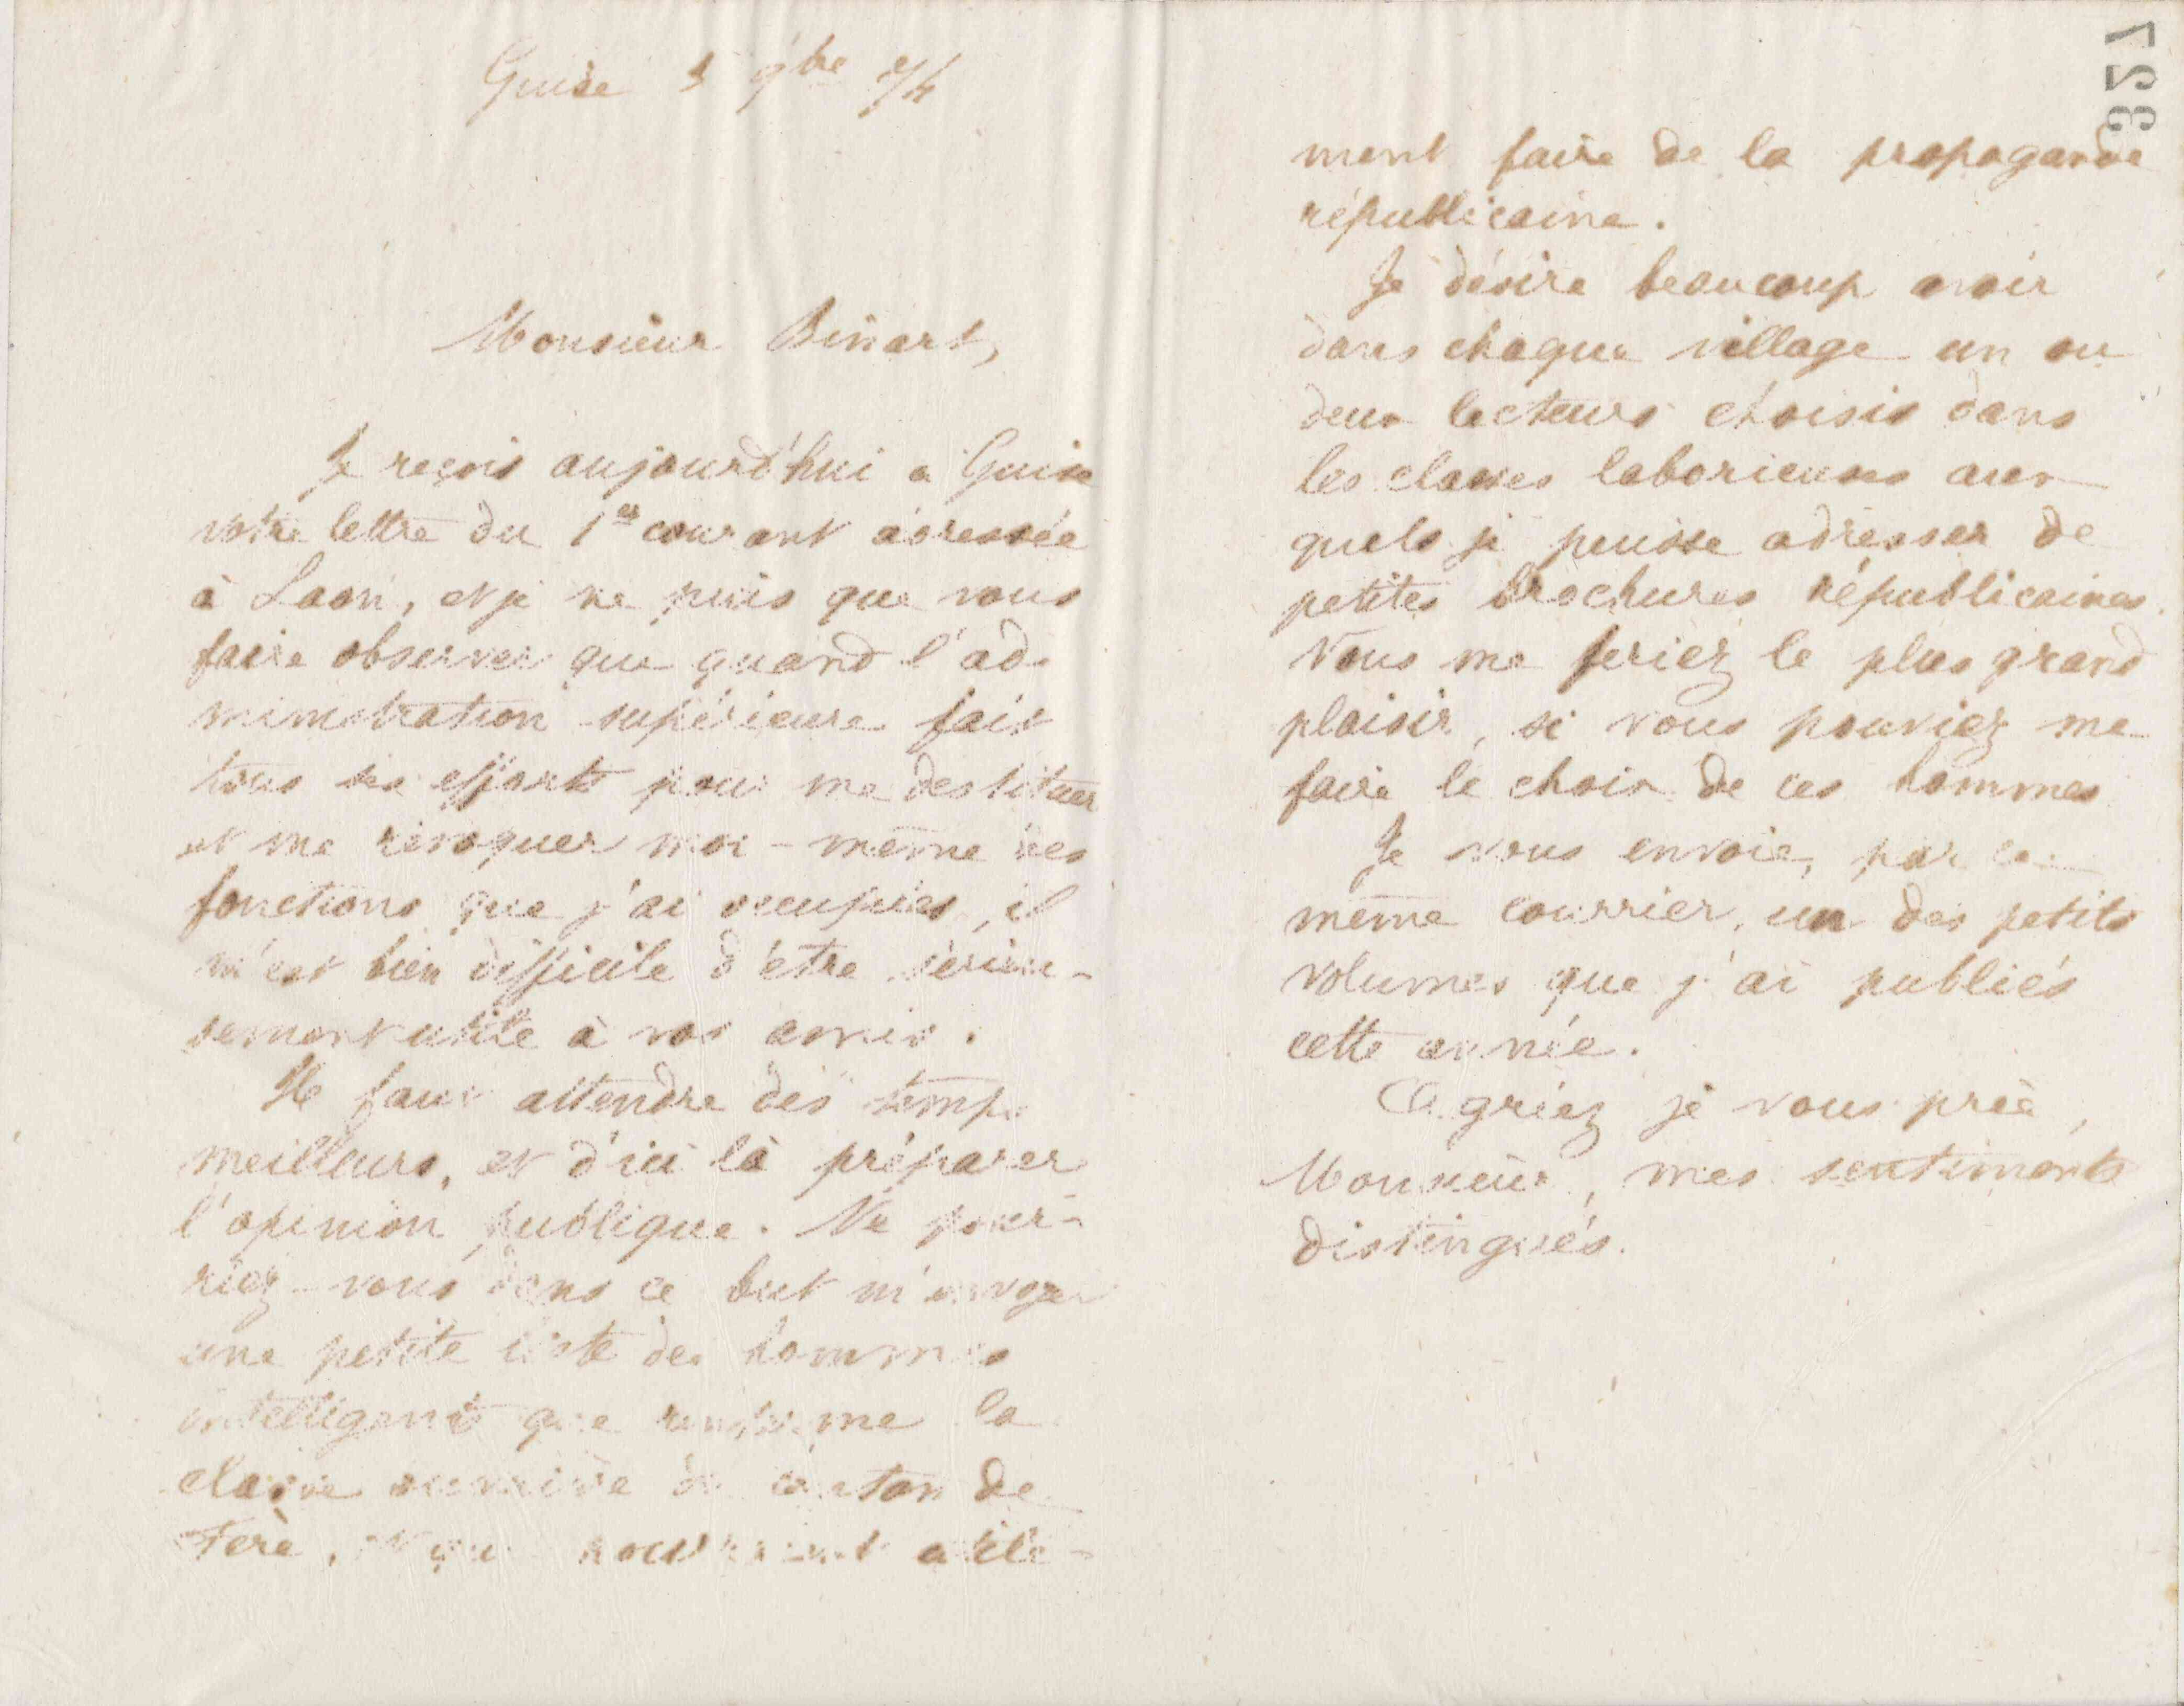 Guise 5 9bre 74
Monsieur Binart,
Je reçois aujourd'hui a Guise
votre lettre du 1er courant adressée
à Laon, et je ne puis que vous
faire observer que quand l'ad-
ministration supérieure fait
tous ses efforts pour me destituer
et me révoquer moi-même des
fonctions que j'ai occupées, il
m'est bien difficile d'être sérieu-
sement utile à vos amis.
Il faut attendre des temps
meilleurs, et d'ici là préparer
l'opinion publique. Ne pour-
riez-vous dans ce but m'envoyer
une petite liste des hommes
intelligents que renferme la
classe ouvrière du canton de
Fère, et qui pourraient utile-
3527
ment faire de la propagande
républicaine.
Je désire beaucoup avoir
dans chaque village un ou
deux lecteurs choisis dans
les classes laborieuses aux-
quels je puisse adresser de
petites brochures républicaines.
Vous me feriez le plus grand
plaisir, si vous pouviez me
faire le choix de ces hommes
Je vous envoie, par ce
même courrier, un des petits
volumes que j'ai publiés
cette année.
Agréez je vous prie,
Monsieur, mes sentiments
distingués.